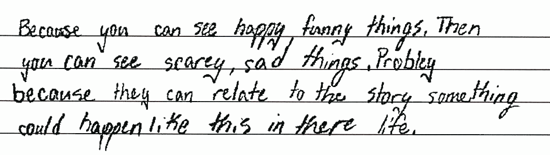 Because you can see happy, funny things. Then
you can see scarey, sad things. Probley
because they can relate to the story something
could happen like this in there life.